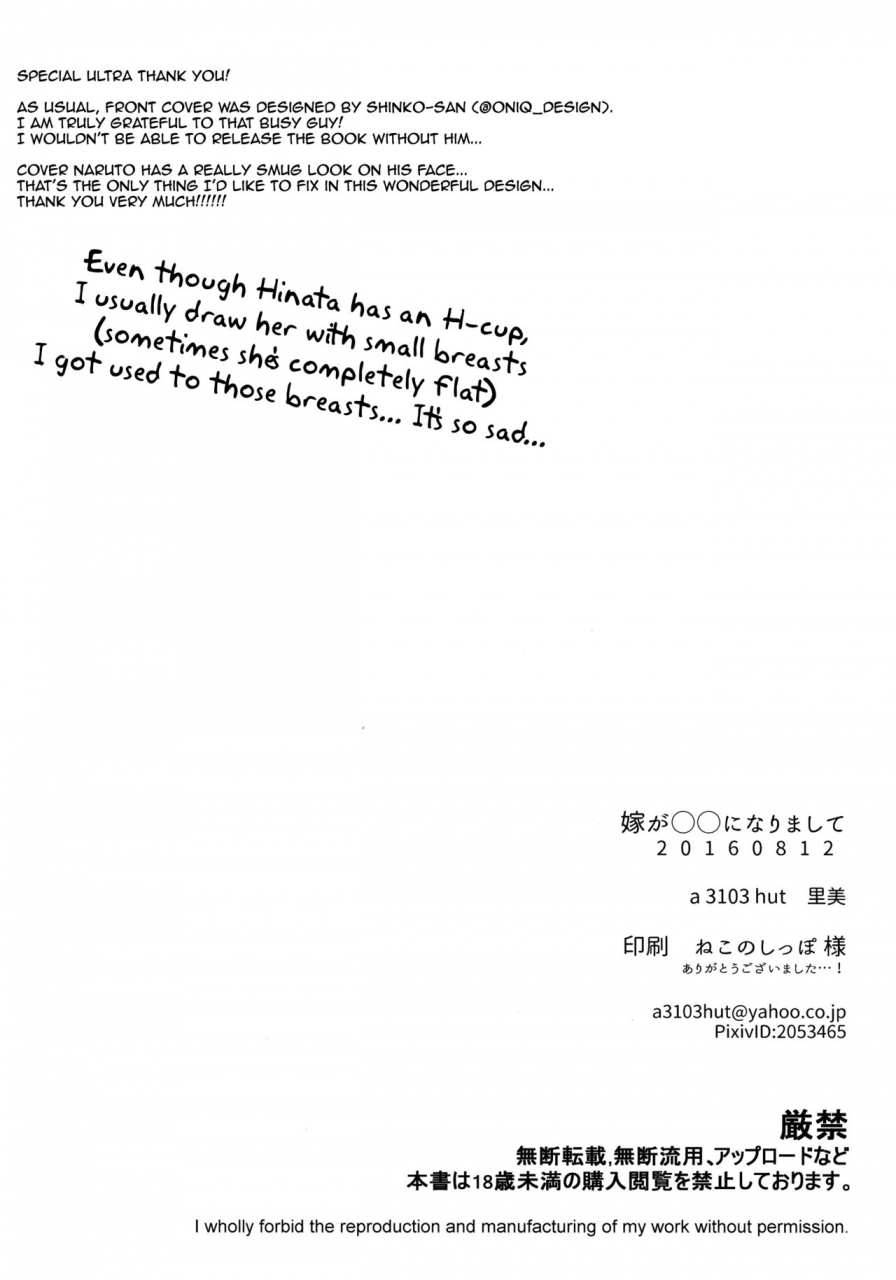 SPECIAL ULTRA THANK YOU!
AS USUAL, FRONT COVER WAS DESIGNED BY SHINKO-SAN (@ONIQ_DESIGN).
I AM TRULY GRATEFUL TO THAT BUSY GUY!
I WOULDN'T BE ABLE TO RELEASE THE BOOK WITHOUT HIM...
COVER NARUTO HAS A REALLY SMUG LOOK ON HIS FACE...
THAT'S THE ONLY THING I'D LIKE TO FIX IN THIS WONDERFUL DESIGN...
THANK YOU VERY MUCH!!!!!!
Even though Hinata has an H-cup,
I usually draw her with small breasts
(sometimes she's completely flat)
I got used to those breasts... It's so sad...
嫁が〇〇になりまして
20160812
a 3103 hut 里美
印刷 ねこのしっぽ 様
ありがとうございました…！
a3103hut@yahoo.co.jp
PixivID:2053465
厳禁
無断転載,無断流用、アップロードなど
本書は18歳未満の購入閲覧を禁止しております。
I wholly forbid the reproduction and manufacturing of my work without permission.